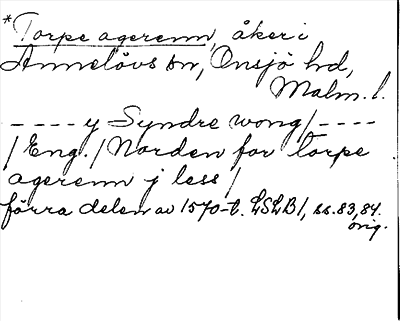 *Torpe agerenn, åker i
Annelövs sn, Onsjö hd,
Malm. l.
---- y Syndre wong/----
/Eng./ Norden for torpe
agerenn j less/
förra delen av 1570-t. LSLB1, ss. 83, 84.
orig.